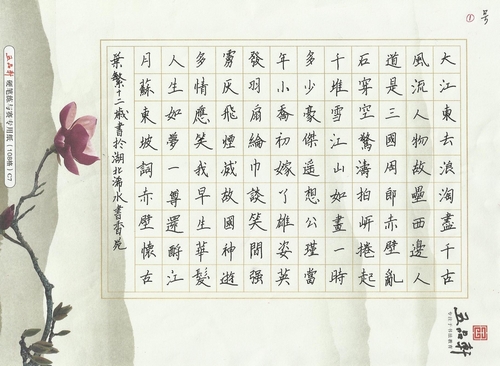 ①号
大江東去浪淘盡千古
風流人物故壘西邊人
道是三國周郎赤壁亂
石穿空驚濤拍岍捲起
千堆雪江山如畫一時
多少豪傑遥想公瑾當
年小喬初嫁了雄姿英
發羽扇綸巾談笑間强
虜灰飛煙滅故國神遊
多情應笑我早生華髮
人生如夢一尊還酹江
月蘇東坡詞赤壁懷古
葉繁十二歲書於湖北浠水書香苑
五品軒 硬笔练与赛专用纸（108格）C7
五品軒